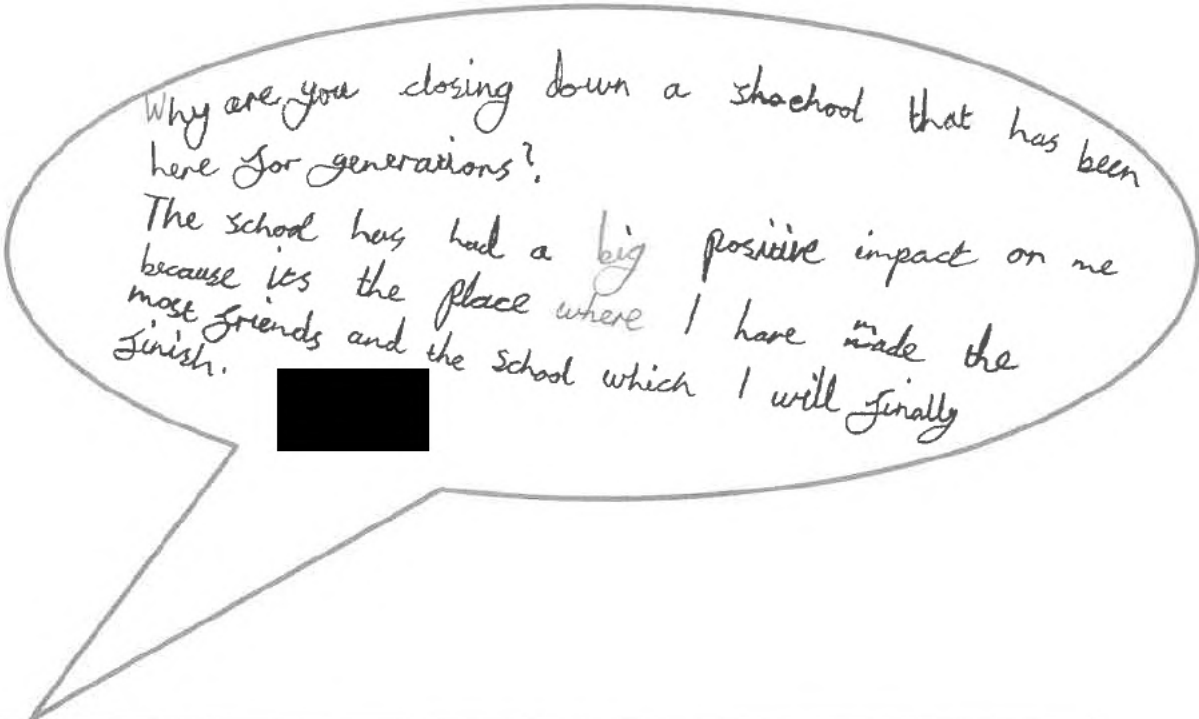 Why are you closing down a shochool that has been
here for generations?
The school has had a big positive impact on me
because its the place where I have made the
most friends and the school which I will finally
finish.